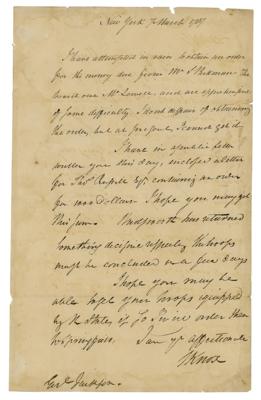 New York 7 March 1787
I have attempted in vain to obtain an order
for the money due from Mr. The
board owe Mr. Lowell, and are apprehensive
of some difficulty. I dont despair of obtaining
the order, but at present, I cannot get it.
I have in a public letter
under your this day, enclosed a letter
for Thos. Russell Esq. containing an order
for 1000 dollars. I hope you may get
this sum. has returned
Something decisive respecting the troops
must be concluded in a few days
I hope you may be
able to get your troops equipped
by the State, if so twice order them
to. I am yr affectionate
HKnox
Jackson.